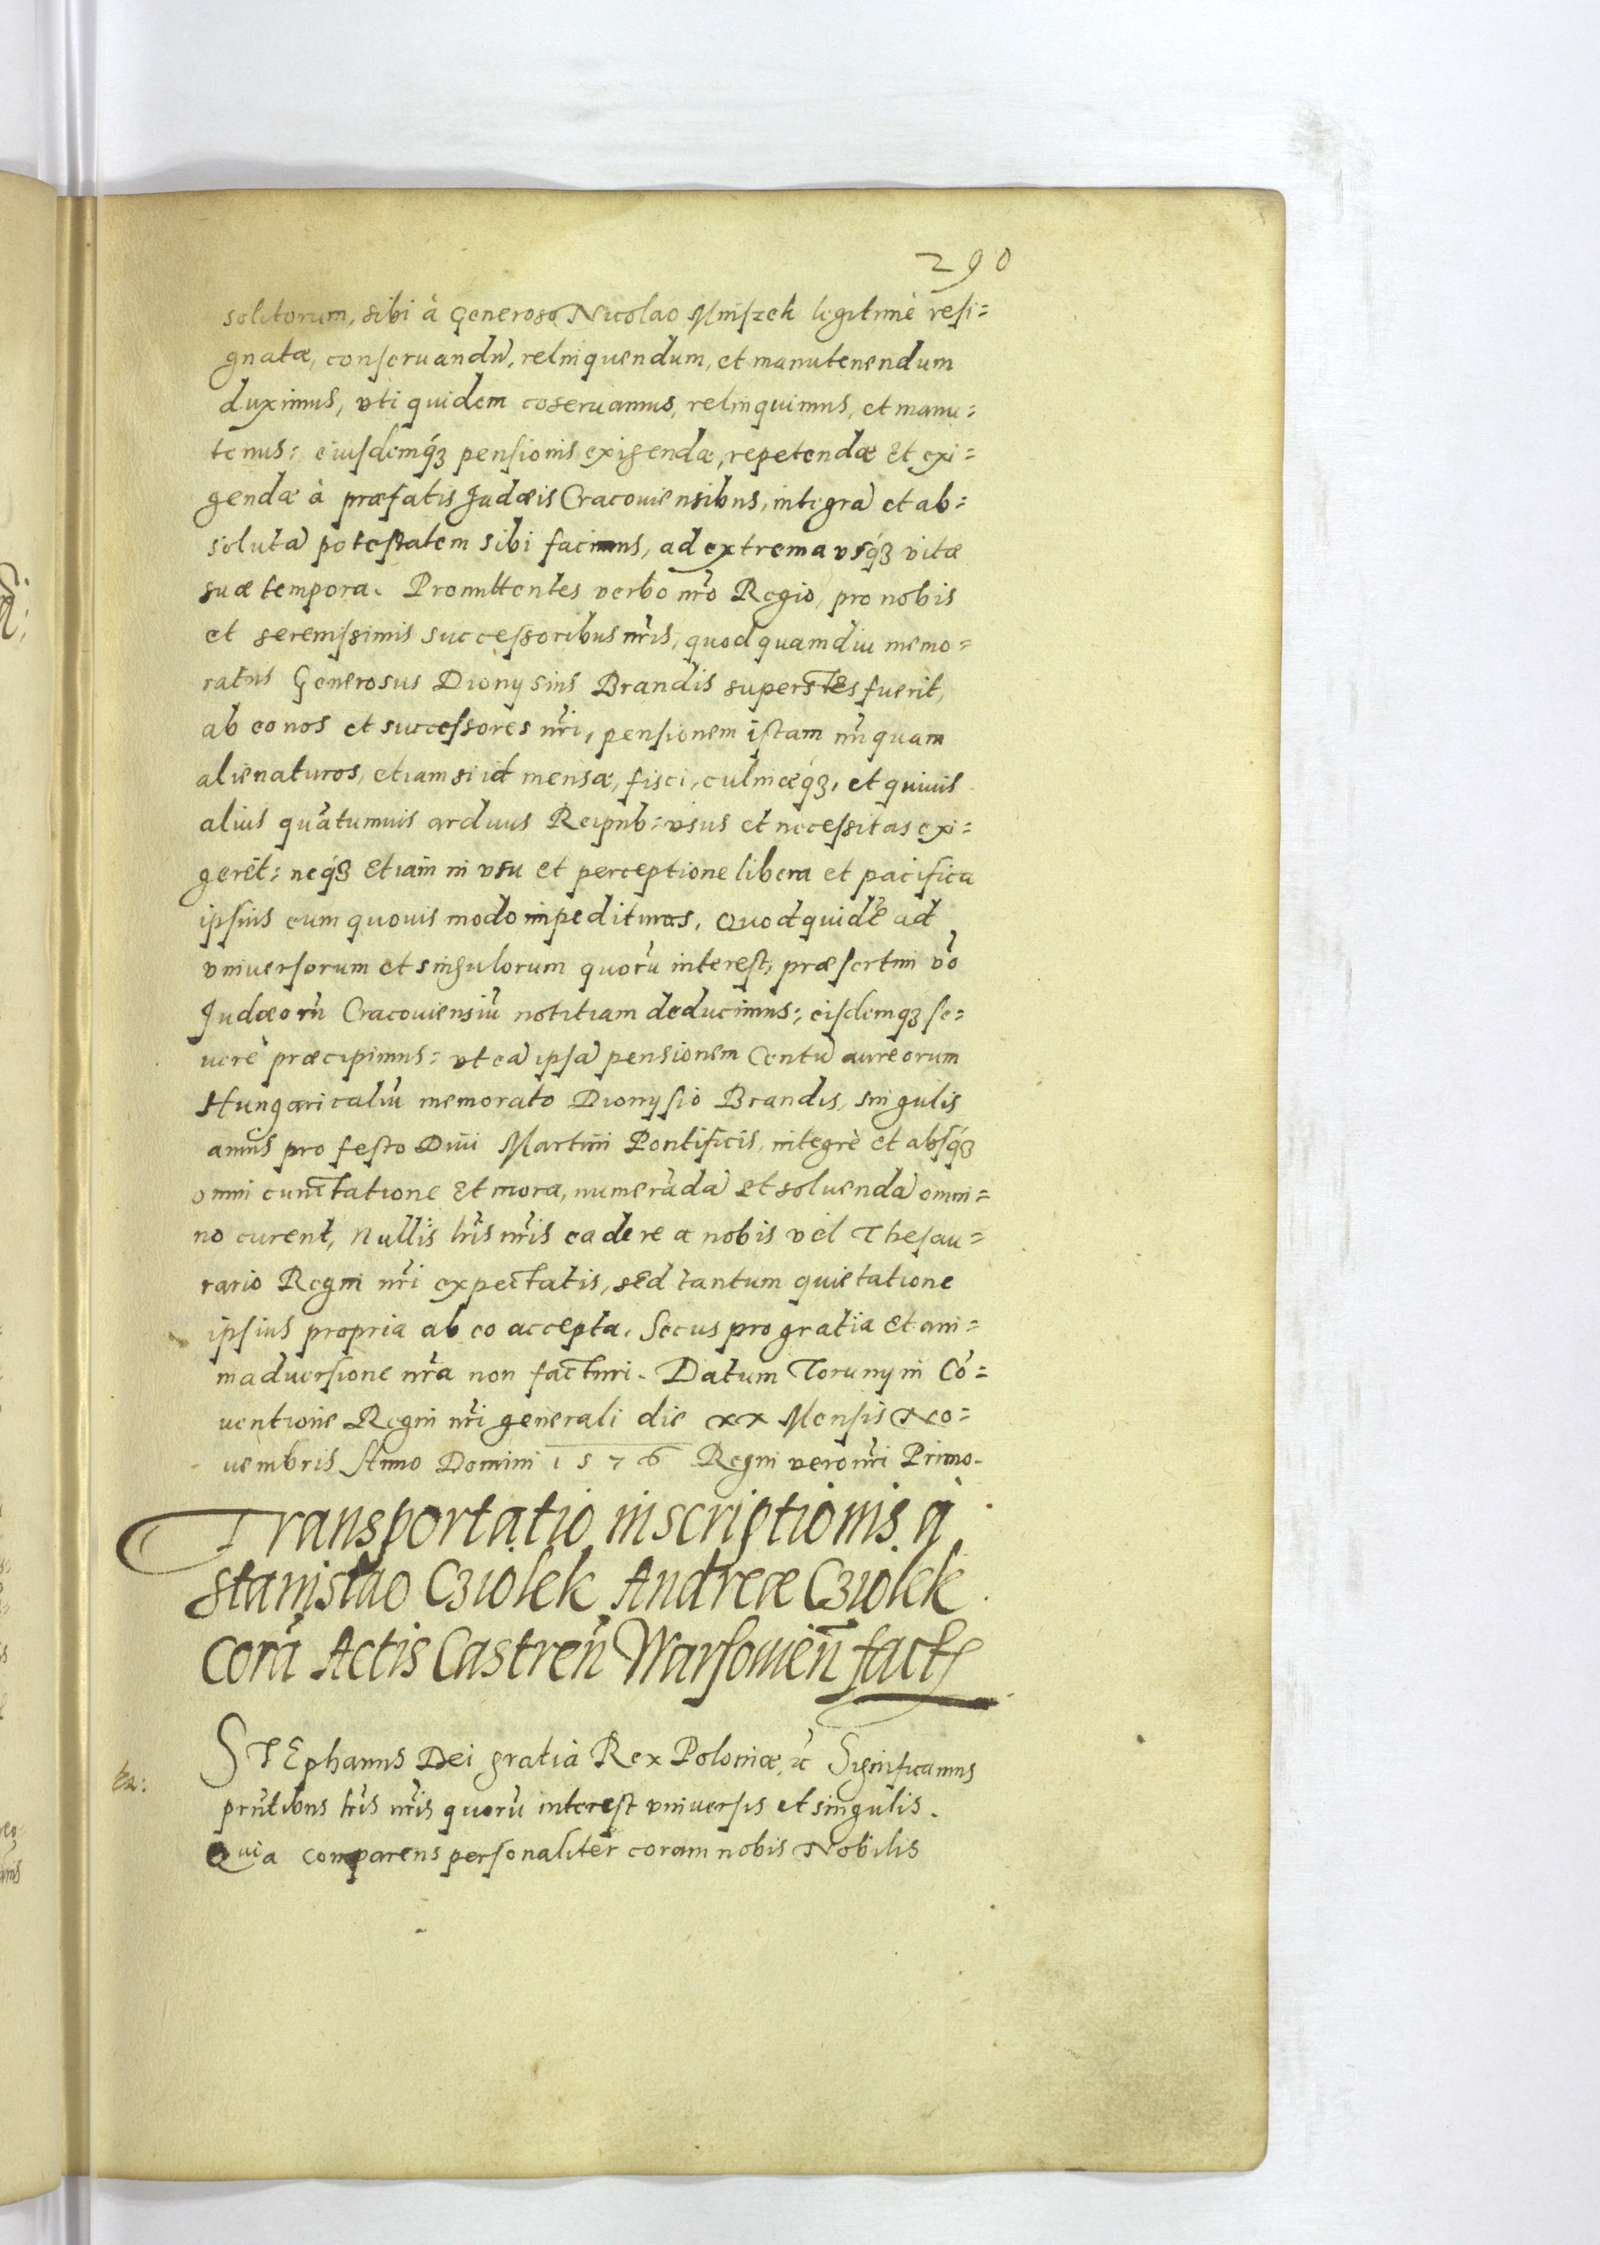 290
solitorum, sibi à Generoso Nicolao Mniszek legitimè resi=
gnatæ, conseruandũ, relinquendum, et manutenendum
duximus, vti quidem cõseruamus, relinquimus, et manu=
tenus: eiusdemq́ꝫ pensionis exigendæ, repetendæ et exi=
gendæ à præfatis Judæis Cracouiensibus, integrã et ab=
solutã potestatem sibi facimus, ad extrema vsq́ꝫ vitæ
suæ tempora. Promittentes verbo nr̃o Regio, pro nobis
et serenissimis successoribus nr̃is, quod quamdiu memo=
ratus Generosus Dionysius Brandis superstes fuerit,
ab eo nos et successores nr̃i, pensionem istam nũquam
alienaturos, etiamsi id mensæ, fisci, culinæq́ꝫ, et quiuis
alius quãtumuis arduus Reipub: vsus et necessitas exi=
gerẽt: neq́ꝫ etiam in vsu et perceptione libera et pacifica
ipsius eum quouis modo impedituros. Quod quidẽ ad
vniuersorum et singulorum quorũ interest, præsertim vo͂
Judæorũ Cracouiensiũ notitiam deducimus: eisdemqꝫ se=
uerè præcipimus: vt eã ipsã pensionem Centũ aureorum
Hungaricaliũ memorato Dionysio Brandis, singulis
annis pro festo Diui Martini Pontificis, integrè et absq́ꝫ
omni cunctatione et mora, numerãdã et soluendã omni=
no curent, nullis lr̃is nr̃is ea de re a nobis vel Thesau=
rario Regni nr̃i expectatis, sed tantum quietatione
ipsius propria ab eo accepta. Secus pro gratia et ani=
maduersione nr̃a non facturi. Datum Toruny in Cõ=
uentione Regni nr̃i generali die xx Mensis No=
uembris Anno Domini 1576 Regni vero nr̃i Primo.
Transportatio inscriptionis à
Stanislao Cziolek Andreæ Cziolek
corã Actis Castreñ Warsouieñ fact
STEphanus Dei gratia Rex Poloniæ, ⁊c̃ Significamus
prñtibus lr̃is nr̃is quorũ interest vniuersis et singulis.
Quia comparens personaliter coram nobis Nobilis